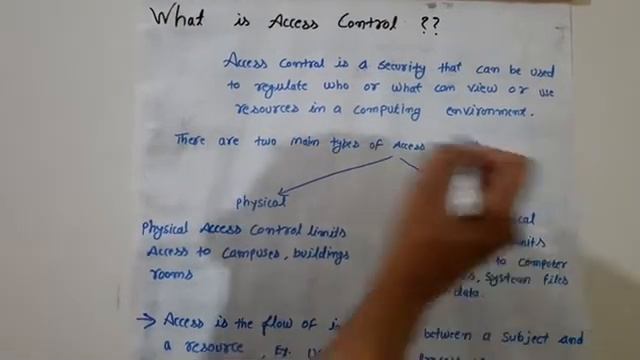 What is Access Control ??
Access control is a security that can be used
to regulate who or what can view or use
resources in a computing environment.
There are two main types of Access
Physical
Physical Access Control limits
Access to campuses, buildings
rooms
to computer
, system files
data.
→ Access is the flow of between a subject and
a resource, Ex.